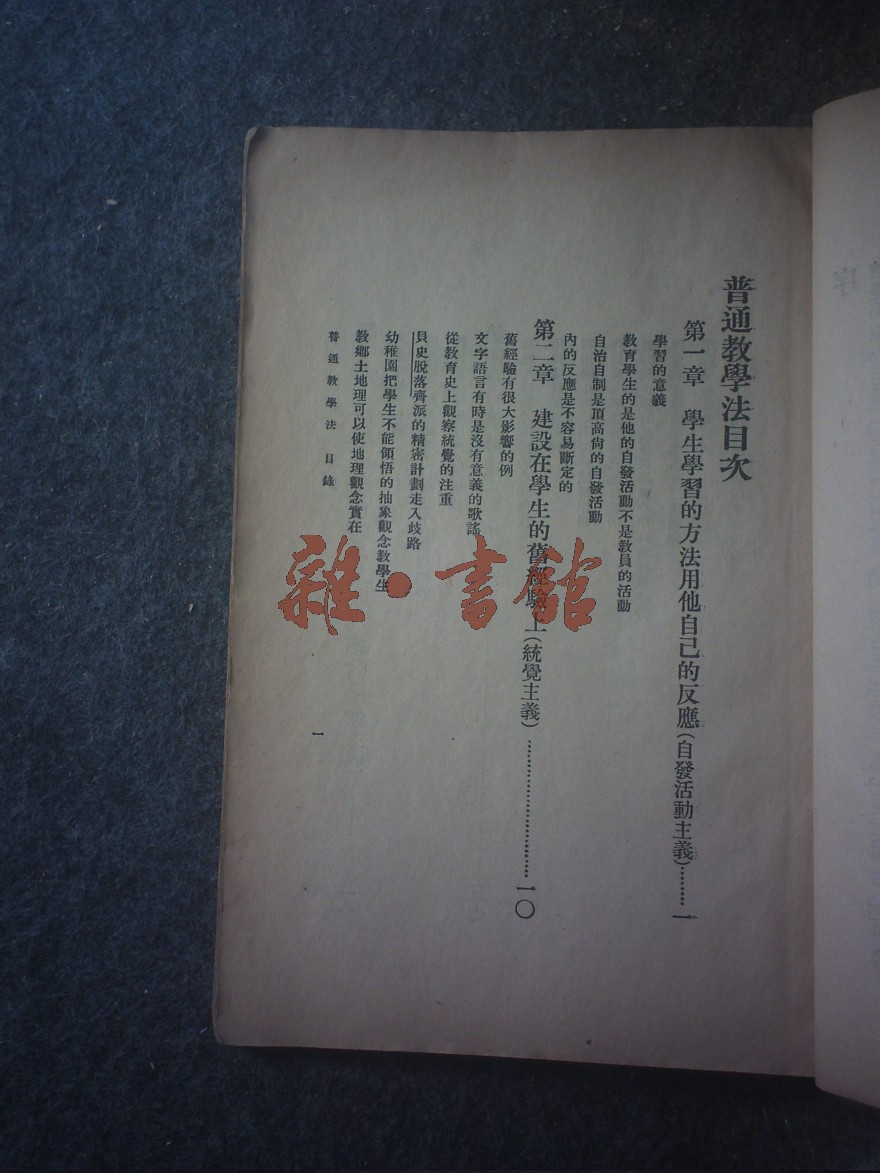 普通教學法目次
第一章　學生學習的方法用他自己的反應(自發活動主義)………一
學習的意義
教育學生的是他的自發活動不是教員的活動
自治自制是頂高尙的自發活動
內的反應是不容易斷定的
第二章　建設在學生的舊經驗上(統覺主義)……………………一〇
舊經驗有很大影響的例
文字語言有時是沒有意義的歌謠
從教育史上觀察統覺的注重
貝史脫落齊派的精密計劃走入歧路
幼稚園把學生不能領悟的抽象觀念教學生
教鄉土地理可以使地理觀念實在
普通教學法　目錄
一
雜·書館
序